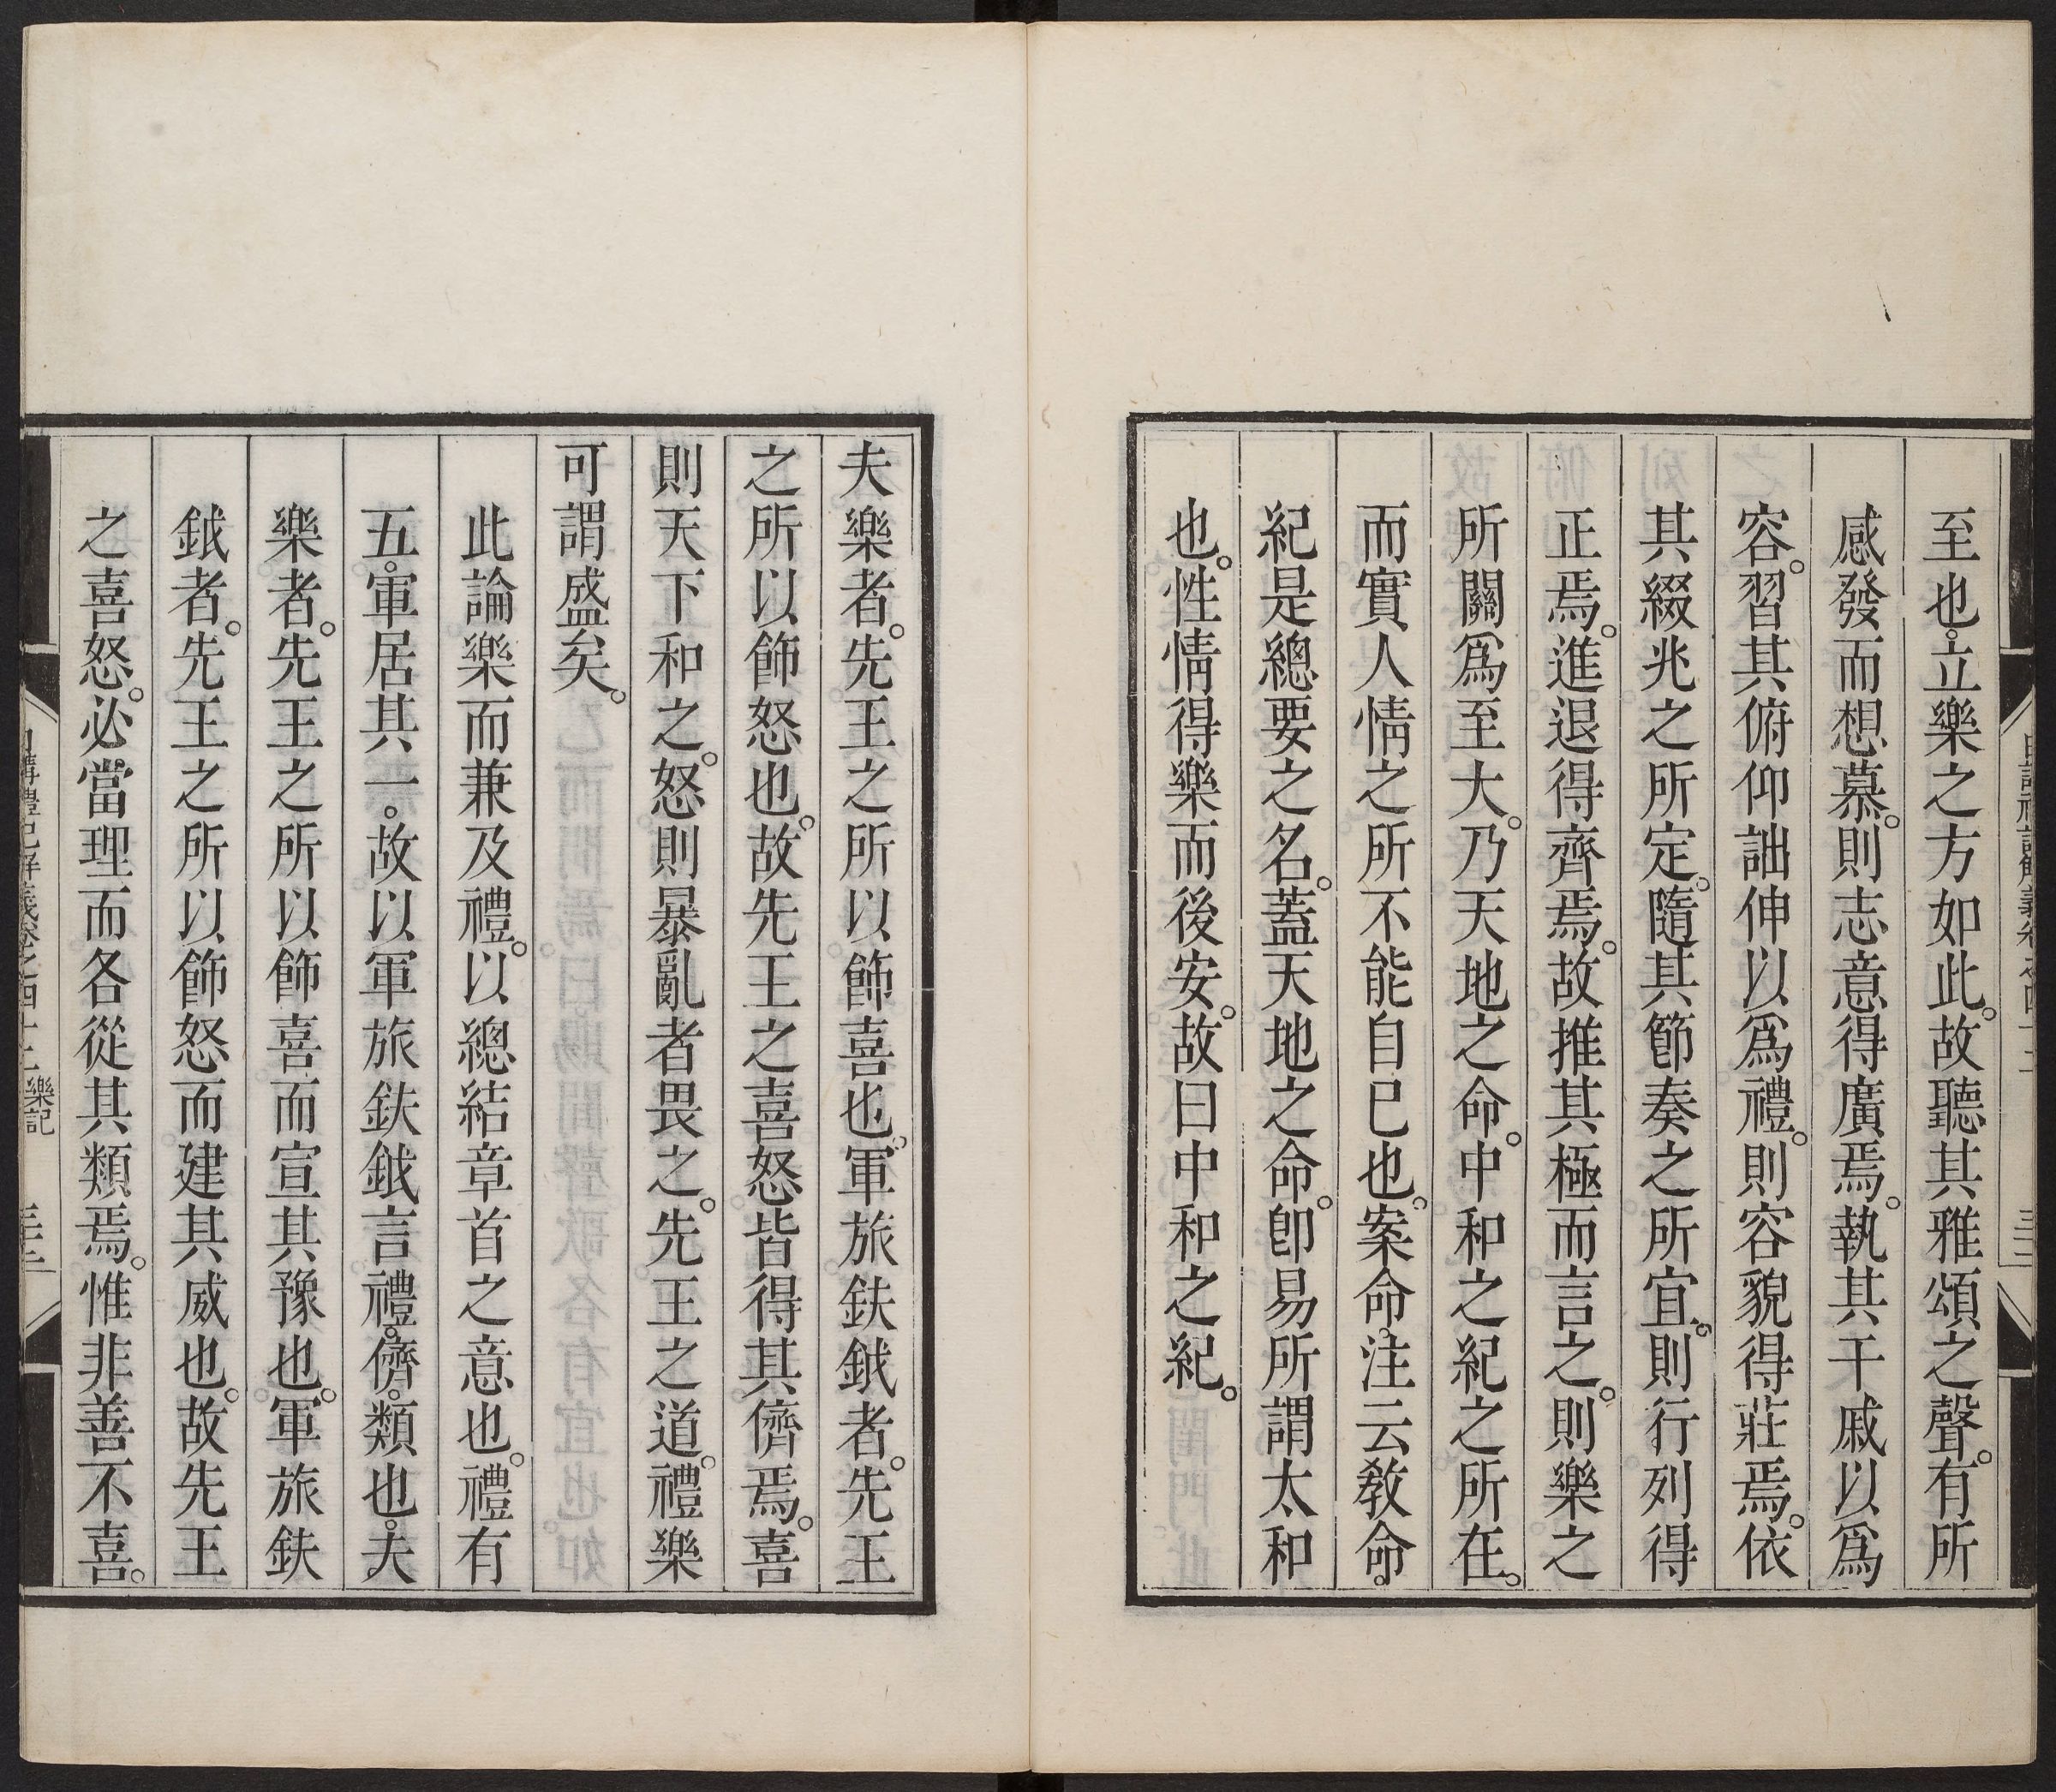 至也。立樂之方如此。故聽其雅頌之聲。有所
感發而想慕。則志意得廣焉。執其干戚以爲
容。習其俯仰詘伸以爲禮。則容貌得莊焉。依
其綴兆之所定。隨其節奏之所宜。則行列得
正焉。進退得齊焉。故推其極而言之。則樂之
所關爲至大。乃天地之命。中和之紀之所在。
而實人情之所不能自已也。案命。注云教命。
紀是總要之名。蓋天地之命。卽易所謂太和
也。性情得樂而後安。故曰中和之紀。
夫樂者。先王之所以飾喜也。軍旅鈇鉞者。先王
之所以飾怒也。故先王之喜怒皆得其儕焉。喜
則天下和之。怒則暴亂者畏之。先王之道。禮樂
可謂盛矣。
此論樂而兼及禮。以總結章首之意也。禮有
五。軍居其一。故以軍旅鈇鉞言禮。儕。類也。夫
樂者。先王之所以飾喜而宣其豫也。軍旅鈇
鉞者。先王之所以飾怒而建其威也。故先王
之喜怒。必當理而各從其類焉。惟非善不喜。
日講禮記解義卷之四十二 樂記 三十二